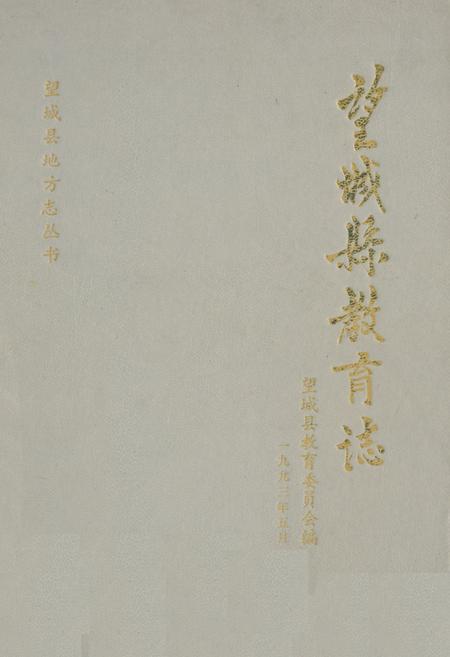 望城縣教育誌
望城县教育委员会编
一九九三年五月
望城县地方志丛书